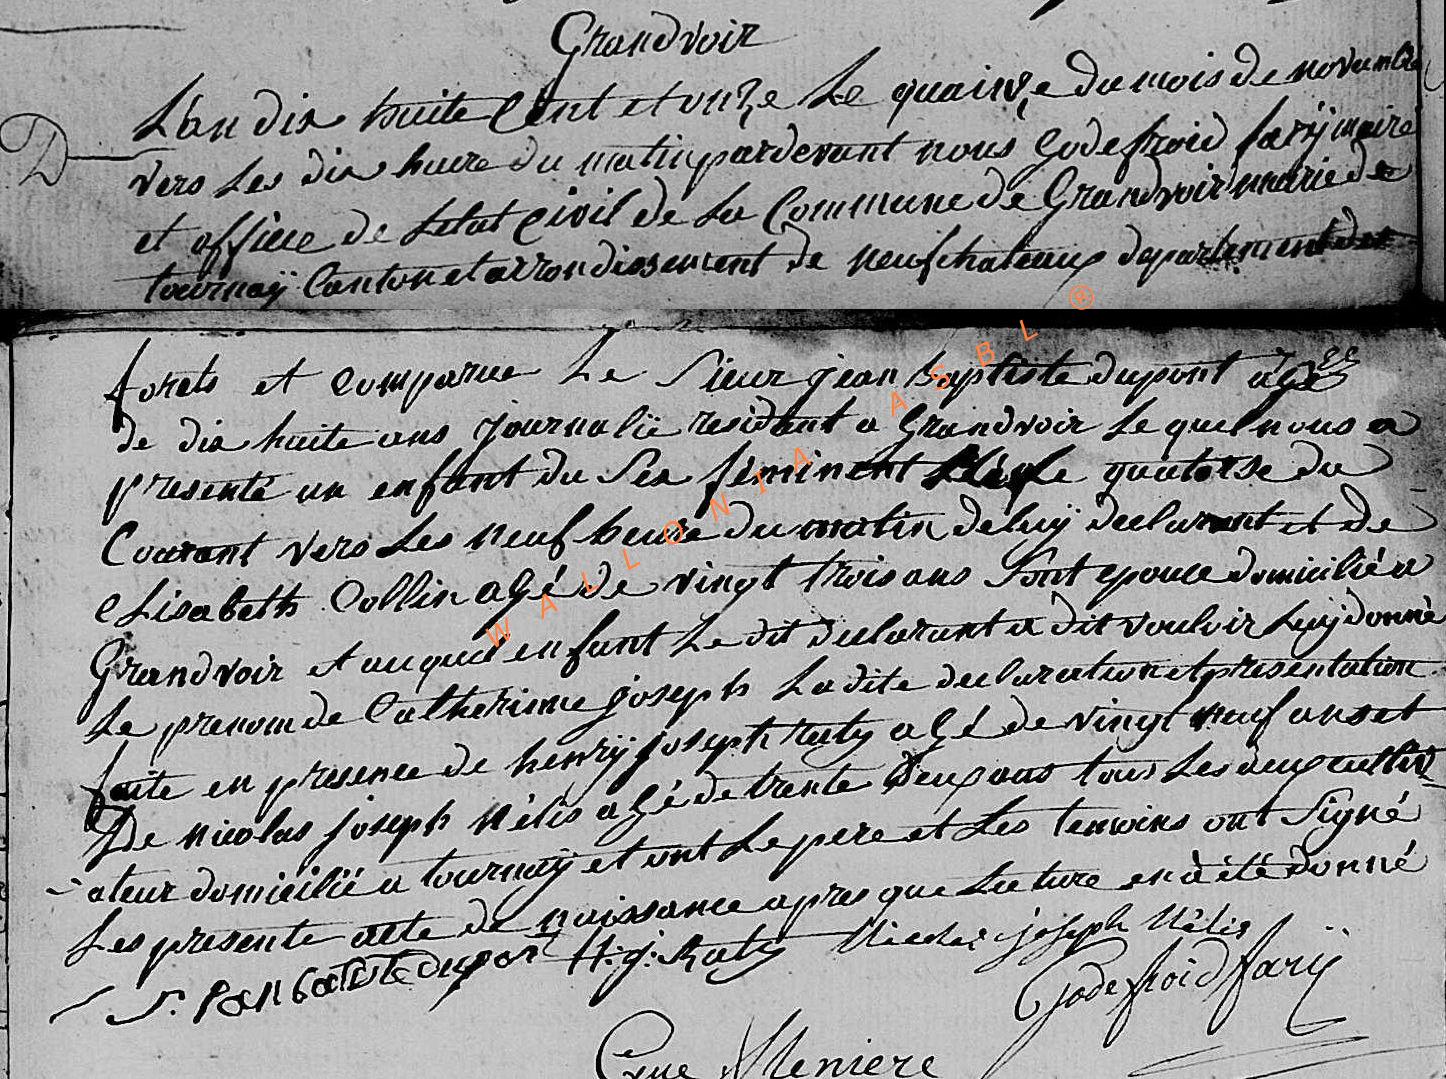 Grandvoir
D
L'an dix huite Cent et onze Le quainse du mois de novembre
vers Les dix heure du matin pardevant nous Godefroid farÿ maire
et officie de L'etat Civil de La Commune de Grandvoir marie de
tournaÿ Canton et arrondissement de neufchateaux departement des
forets et comparue Le Sieur jean Baptiste dupont agé
de dix huite ans journalie residant a Grandvoir Le quel nous a
presenté un enfant du Sex feminent née Le quatorse du
Courant vers Les neuf heure du matin de luÿ declarant et de
elisabeth Collin agé de vingt trois ans Sont epouce domicilié a
Grandvoir et auquel enfant Le dit declarant a dit vouloir Luÿ donné
Le prenom de Catherinne joseph La dite declaration et presentation
faite en presence de henrÿ joseph raty agé de vingt neuf ans et
De nicolas joseph Nélis agé de trente deux ans tous Les deux cultiv
ateur domicilié a tournaÿ et ont Le pere et Les temoins ont Signé
Les presente acte de naissance apres que Lecture en a été donné
J. Pan batiste dupon H. j. Raty Nicolas joseph Nélis
Godefroid farÿ
Meniere
WALLONIA ASBL ®